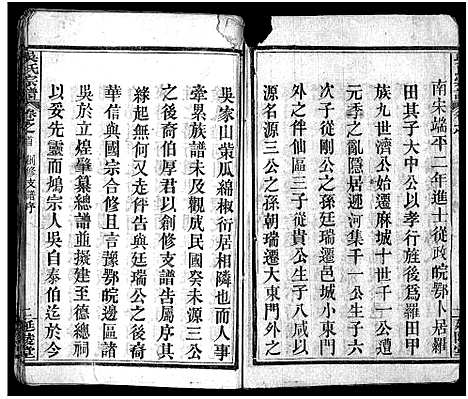 南宋端平二年進士從政皖鄂卜居羅
田其子大中公以孝行旌後爲羅田甲
族九世濟公始遷麻城十世千一公當
元季之亂隱居邇河集千一公生子六
次子從剛公之孫廷瑞遷邑城小東門
外之伍佰區三子從貴公生子八長
源名源三公之孫朝瑞遷大東門外之
吳家山業瓜綿椒衍居相隣也而人事
牽累族譜未及觀成民國癸未源三公
之後裔伯厚君以創修支譜告屬序其
緣起無何又走伻告與廷瑞公之後裔
華信與國宗合修且言豫鄂皖邊區諸
吳於立煌肇纂總譜並擬建至德總祠
以妥先靈而鳩宗人吳自泰伯以迄今
吳氏宗譜
卷之首
創修支譜序
二
延陵堂